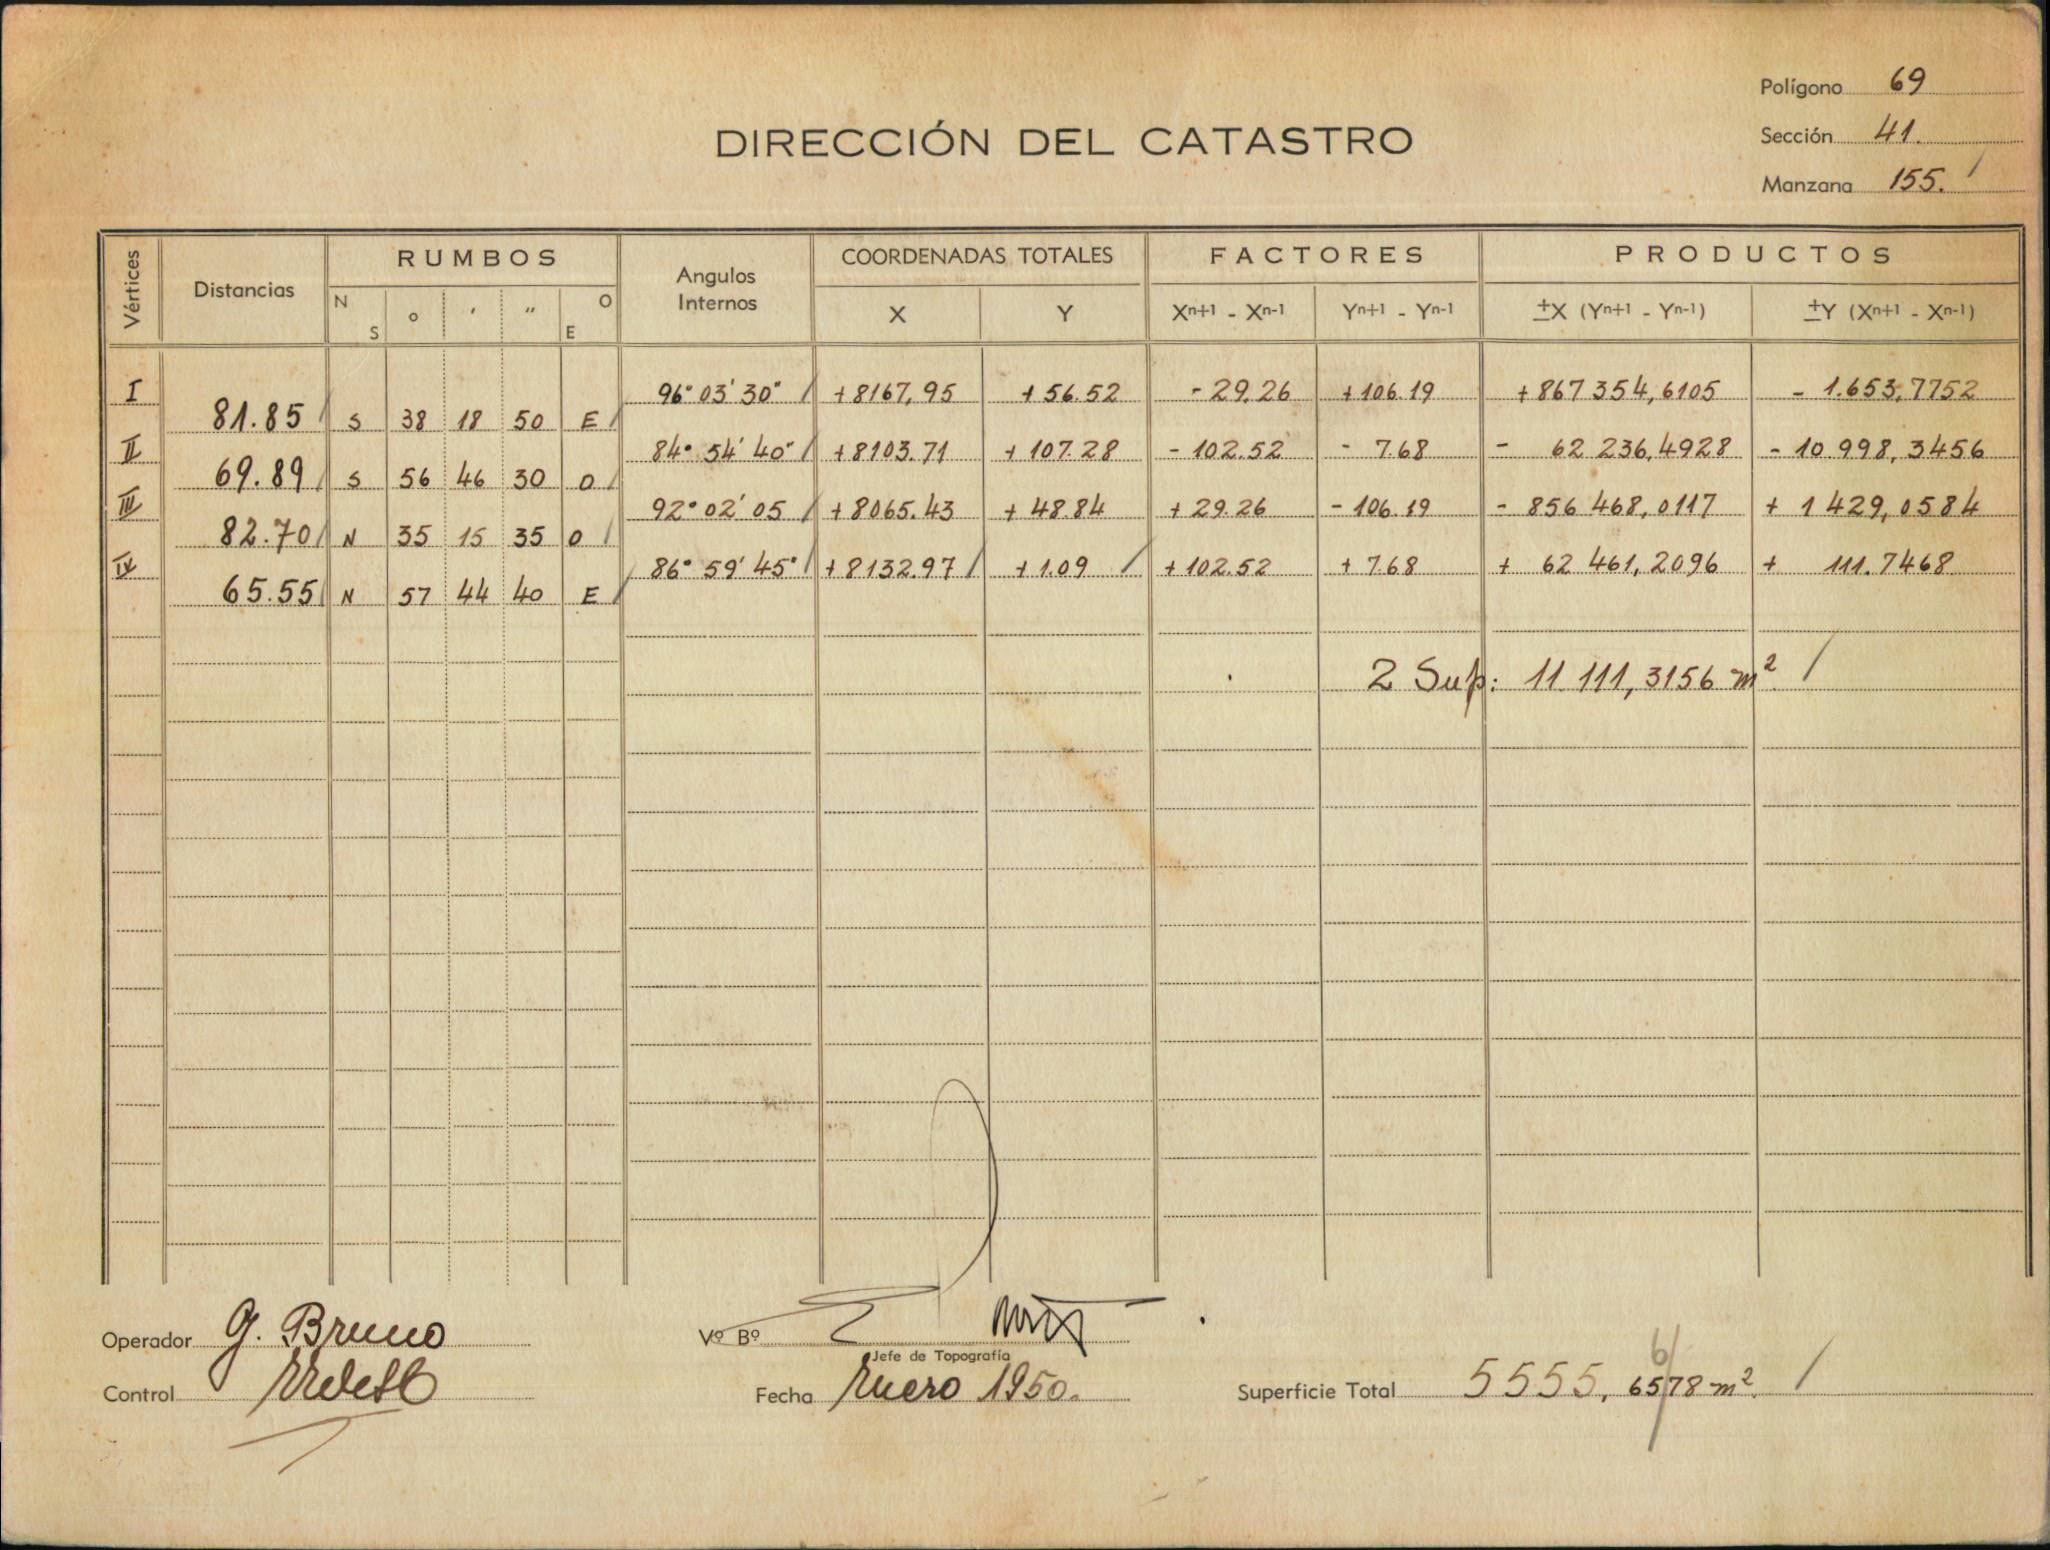 Polígono 69
DIRECCIÓN DEL CATASTRO
Sección 41.
Manzana 155.
Vértices Distancias RUMBOS Angulos Internos COORDENADAS TOTALES FACTORES PRODUCTOS
N S ° ' " O E X Y Xn+1 - Xn-1 Yn+1 - Yn-1 ±X (Yn+1 - Yn-1) ±Y (Xn+1 - Xn-1)
I 96° 03' 30" +8167,95 +56.52 -29.26 +106.19 +867 354,6105 - 1.653,7752
81.85 S 38 18 50 E
II 84° 54' 40" +8103.71 +107.28 -102.52 - 7.68 - 62 236,4928 - 10 998,3456
69.89 S 56 46 30 O
III 92° 02' 05 +8065.43 +48.84 +29.26 -106.19 - 856 468,0117 + 1 429,0584
82.70 N 35 15 35 O
IV 86° 59' 45" +8132.97 +1.09 +102.52 +7.68 + 62 461,2096 + 111.7468
65.55 N 57 44 40 E
2 Sup: 11 111,3156 m²
Operador G. Bruno
Vº Bº
Jefe de Topografía
Control
Fecha Enero 1950.
Superficie Total 5555,6578 m².
6